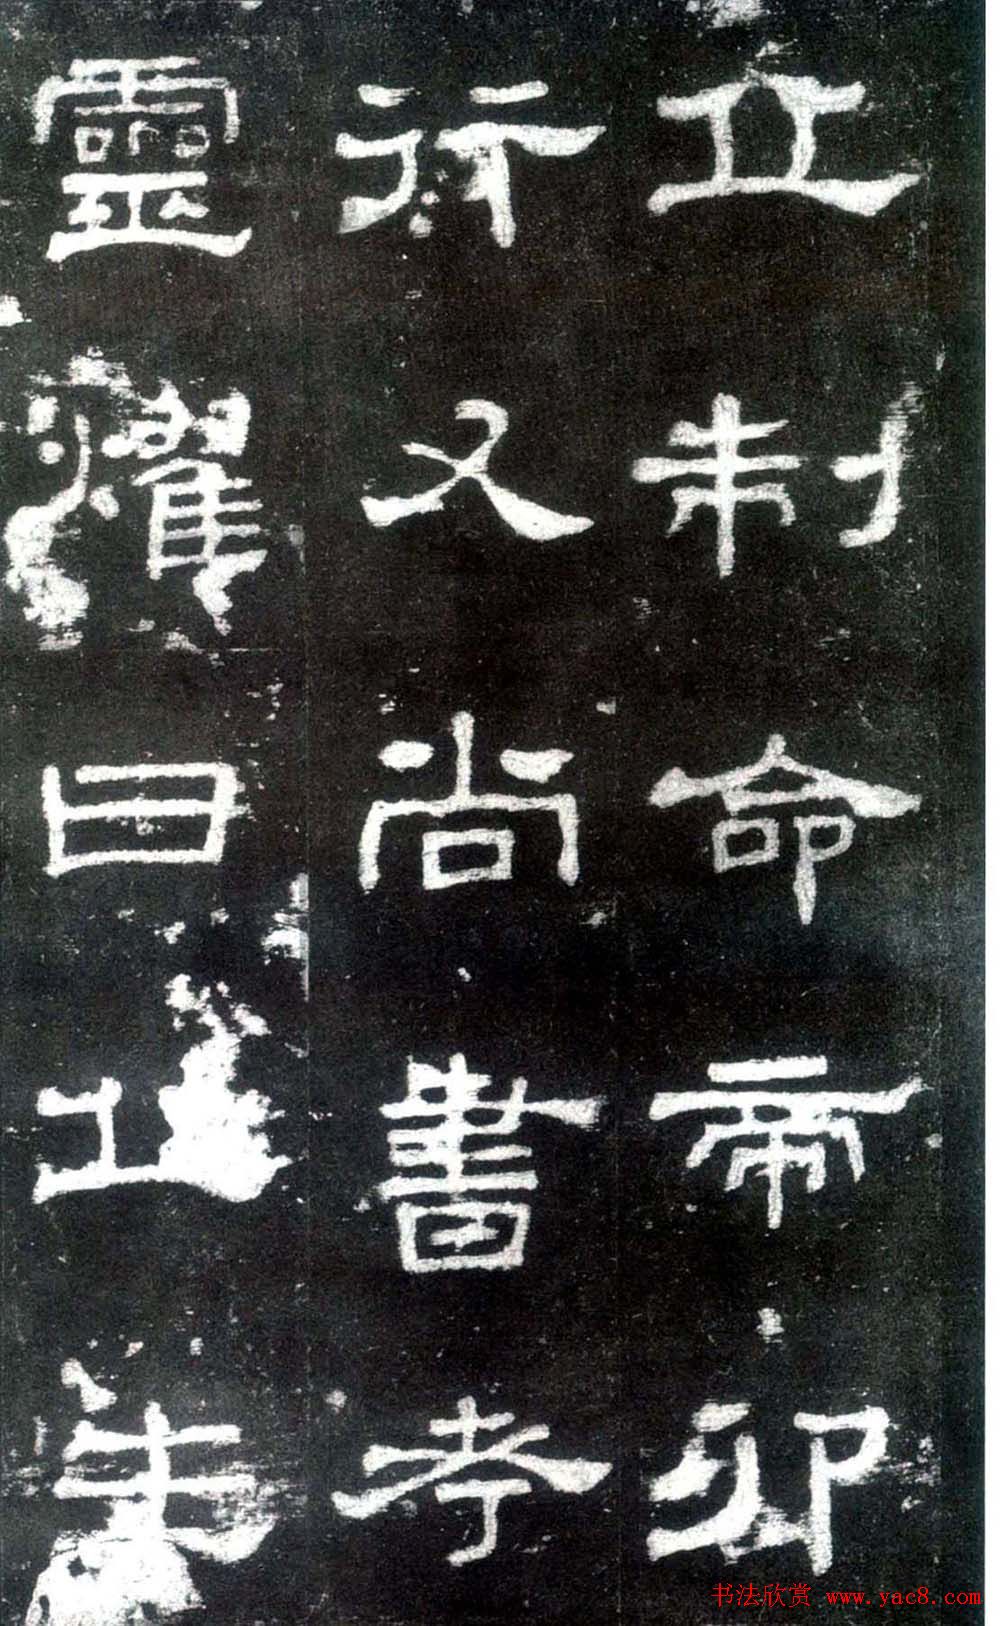 立制命帝卯
行又尚書考
靈燿曰丘生
书法欣赏 www.yac8.com